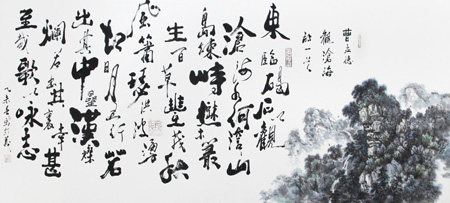 曹孟德
觀滄海
詩一首
東臨碣石以觀
滄海水何澹澹山
島竦峙樹木叢
生百草豐茂秋
風蕭瑟洪波湧
起日月之行若
出其中星漢燦
爛若出其裏幸甚
至哉歌以咏志